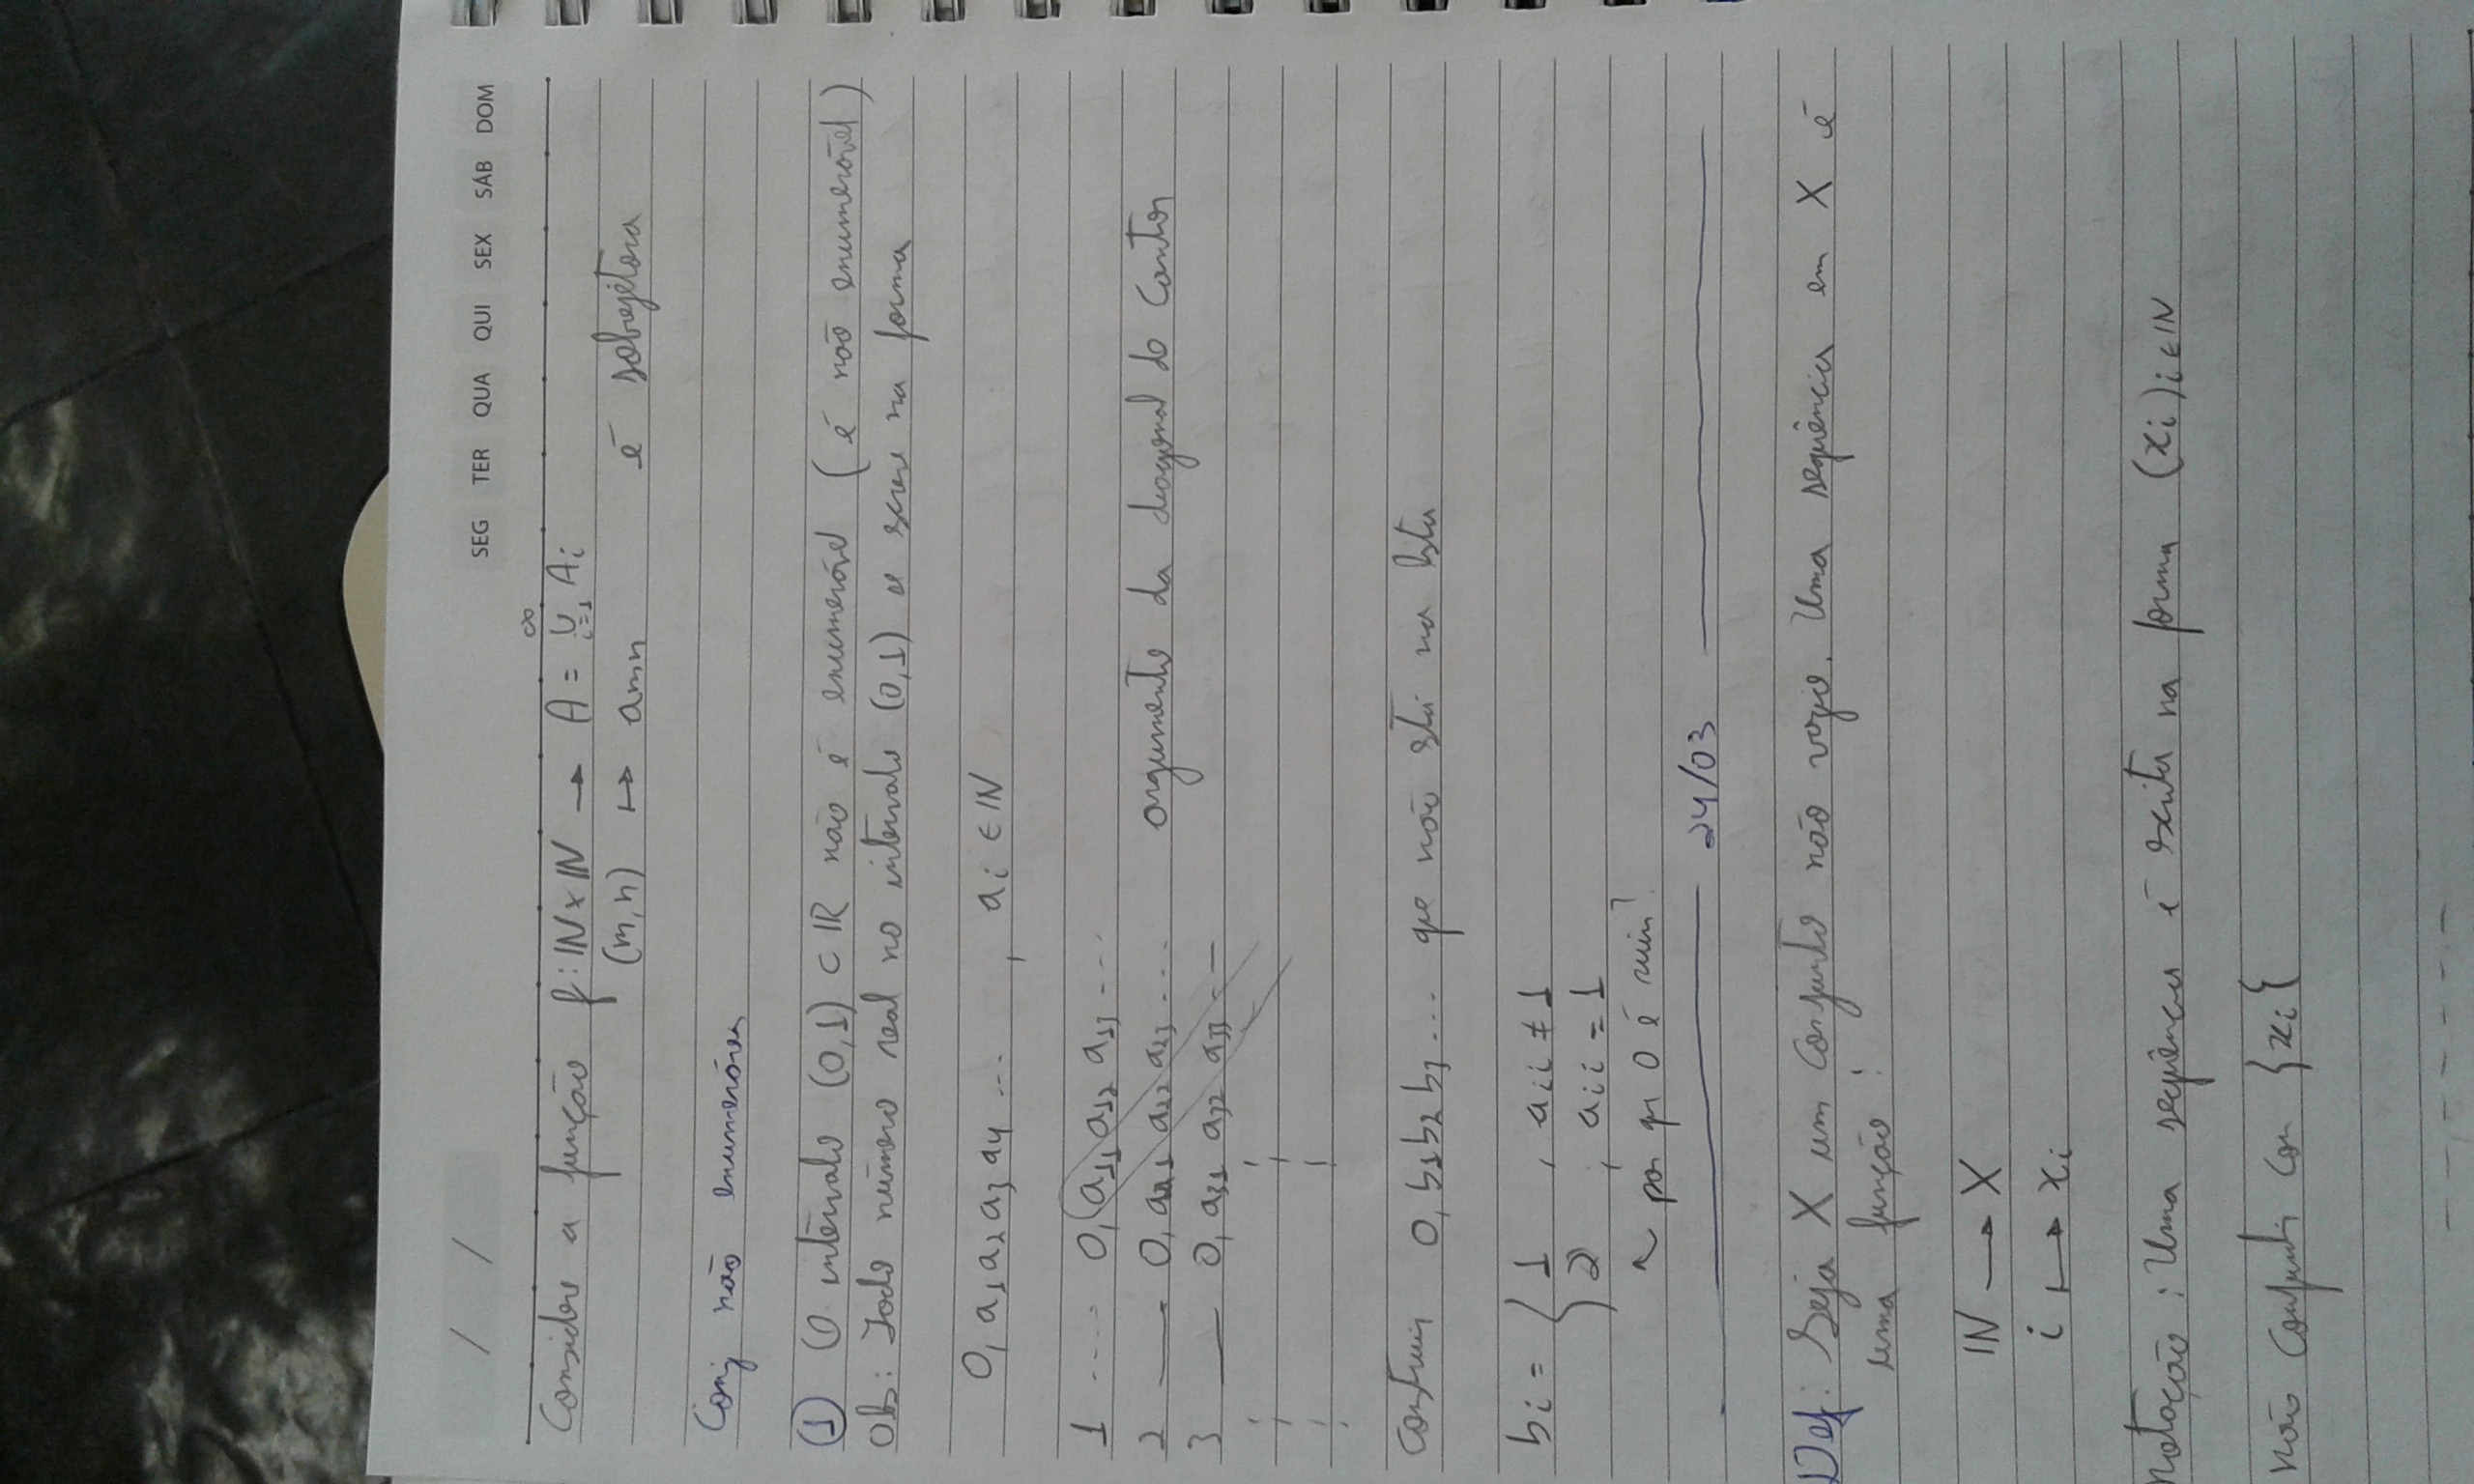 / /
SEG TER QUA QUI SEX SÁB DOM
Considere a função f: IN x IN → A = ∞∪i=1 Ai
(m,n) ↦ amn é sobrejetora
Conj não enumeráveis
① O intervalo (0,1) ⊂ IR não é enumerável ( é não enumerável )
Ob: Todo número real no intervalo (0,1) se screve na forma
0, a1 a2 a3 a4 ... , ai ∈ IN
1 .... 0, a11 a12 a13 ...
2 — 0, a21 a22 a23 ... argumento da diagonal do Cantor
3 — 0, a31 a32 a33 ---
construir 0, b1 b2 b3 ... que não stá na lista
bi = { 1 , aii ≠ 1
2 , aii = 1
↖ por que 0 é ruim?
24/03
Def: Seja X um conjunto não vazio. Uma sequência em X é
uma função:
IN → X
i ↦ xi
Notação: Uma sequência é escrita na forma (xi)i∈IN
não confundir com }xi{